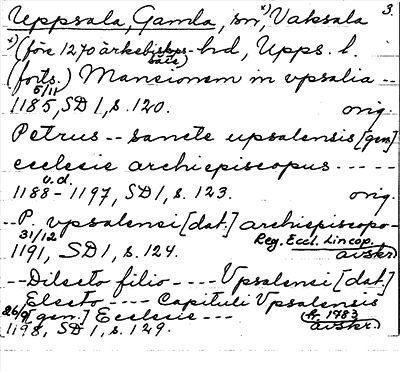 Uppsala, Gamla, sn,*) Vaksala 3.
*) (före 1270 ärkebiskops-säte) hd, Upps. l.
(forts.) Mansionem in vpsalia --
5/11
1185, SD 1, s. 120. orig.
Petrus -- sancte upsalensis [gen]
ecclesie archiepiscopus -----
u.d.
1188-1197, SD 1, s. 123. orig.
-- P. vpsalensi [dat.] archiepiscopo-
31/12 Reg. Eccl. Lincop.
1191, SD 1, s. 124. avskr.
-- Dilecto filio ---- Vpsalensi [dat]
Electo ---- Capituli Vpsalensis
[gen.] Ecclesie --- fr. 1783
1198, SD 1, s. 129. avskr.